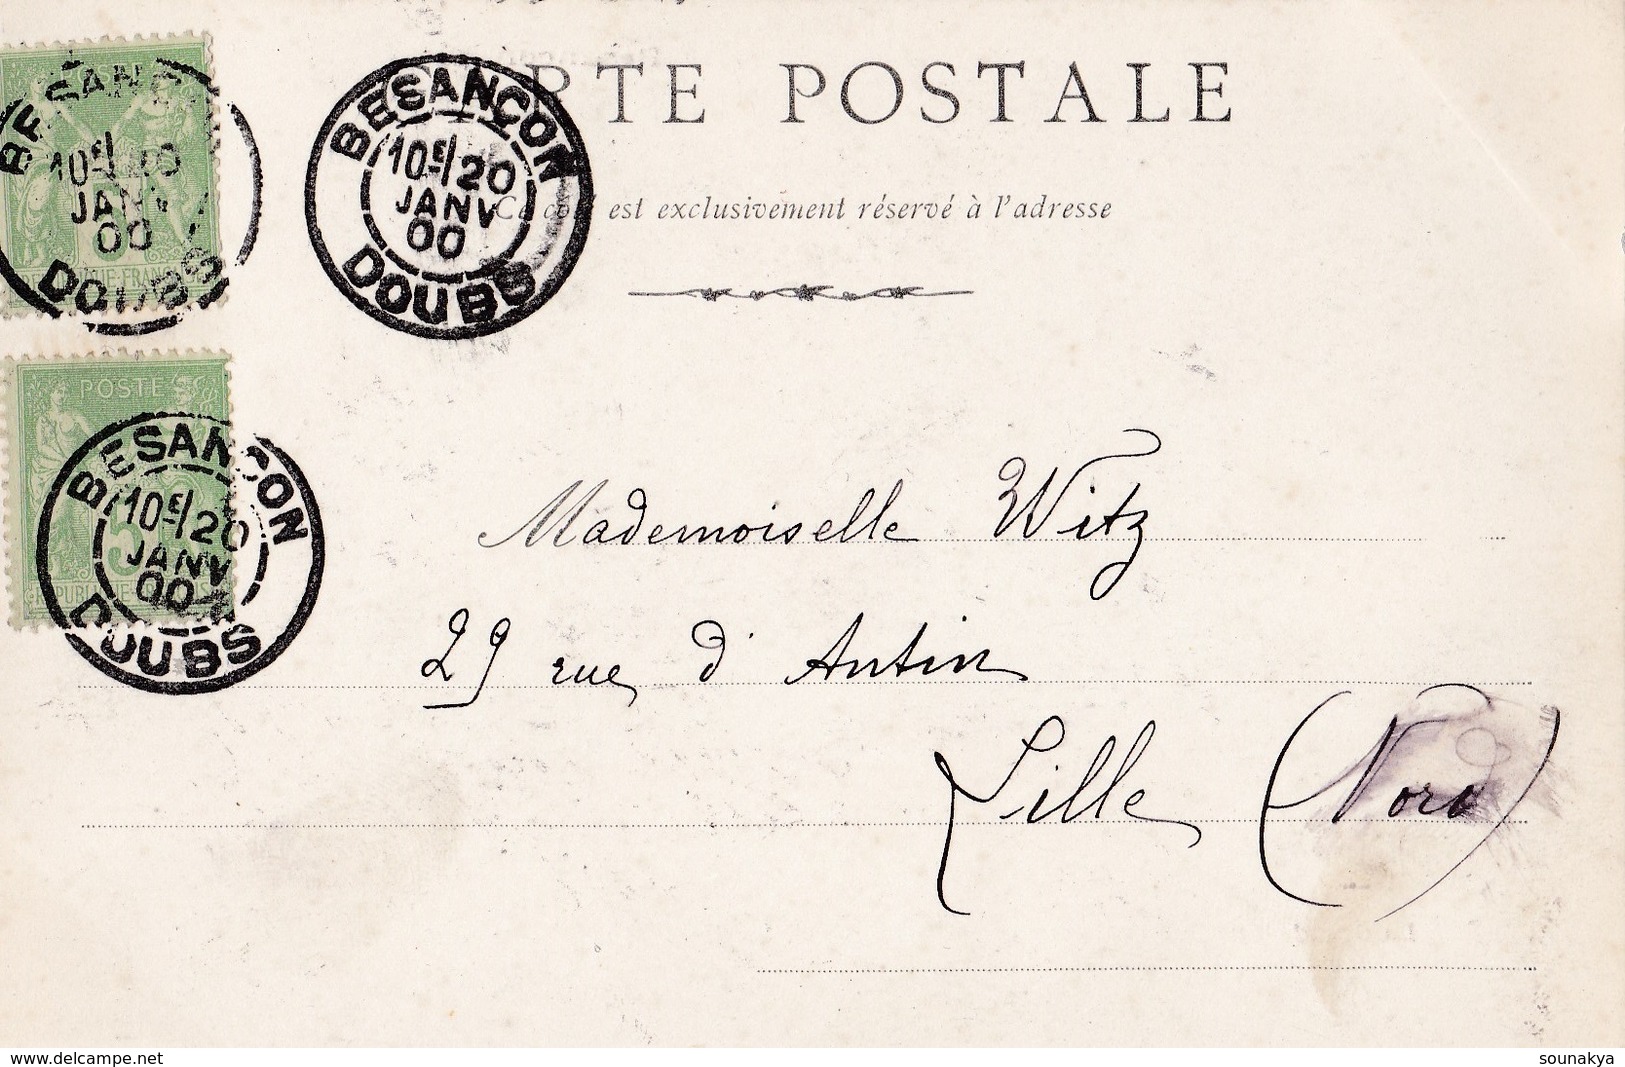 RTE POSTALE
Ce côté est exclusivement réservé à l'adresse
BESANÇON
10E/20
JANV
00
DOUBS
BESANÇON
10E/20
JANV
00
DOUBS
POSTE
BESANÇON
10E/20
JANV
00
DOUBS
5
Mademoiselle Witz
29 rue d'Antin
Lille (Nord)
www.delcampe.net
sounakya